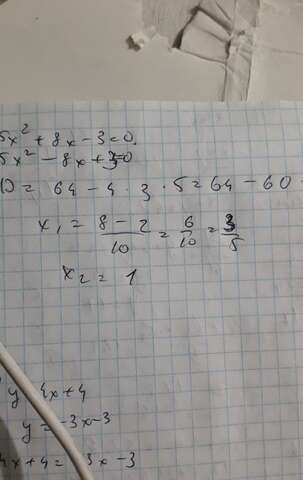 5x² + 8x - 3 = 0.
5x² - 8x + 3 = 0
D = 64 - 4 · 3 · 5 = 64 - 60
x₁ = (8 - 2)/10 = 6/10 = 3/5
x₂ = 1
y 4x + 4
y = -3x - 3
4x + 4 = -3x - 3